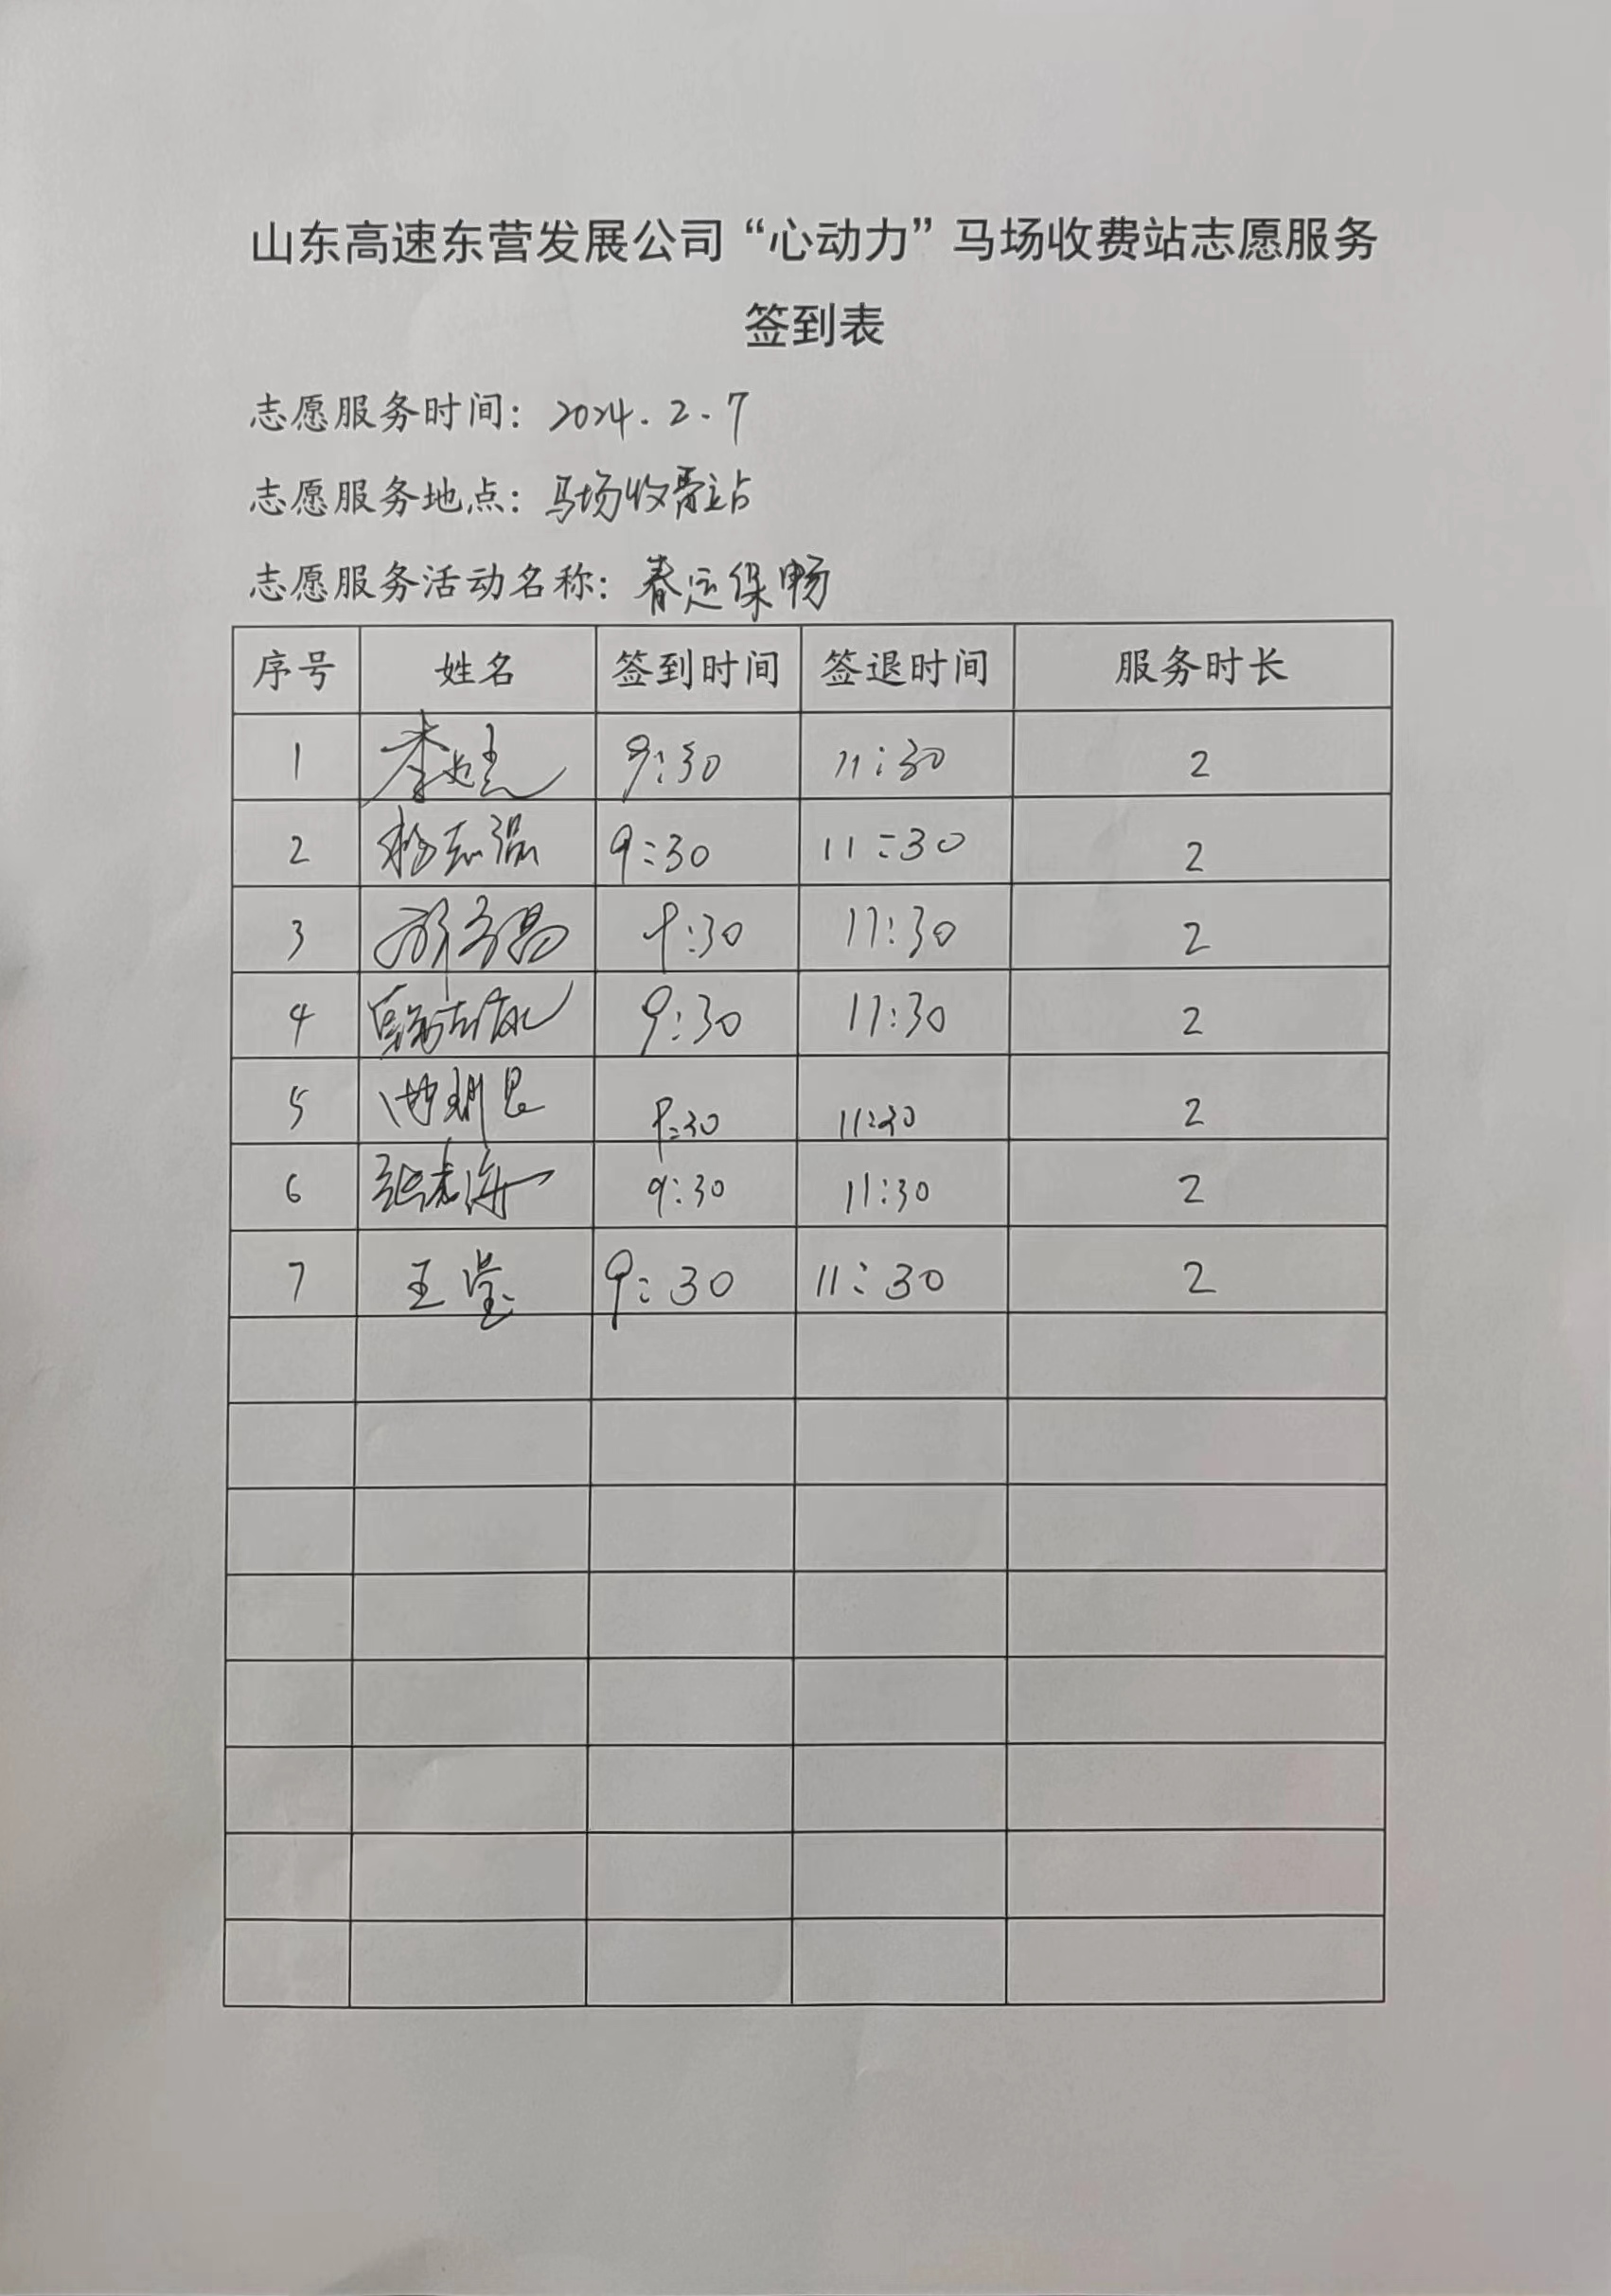 山东高速东营发展公司“心动力”马场收费站志愿服务
签到表
志愿服务时间：2024.2.7
志愿服务地点：马场收费站
志愿服务活动名称：春运保畅
序号 姓名 签到时间 签退时间 服务时长
1 9:30 11:30 2
2 杨志强 9:30 11:30 2
3 9:30 11:30 2
4 9:30 11:30 2
5 9:30 11:30 2
6 9:30 11:30 2
7 王莹 9:30 11:30 2